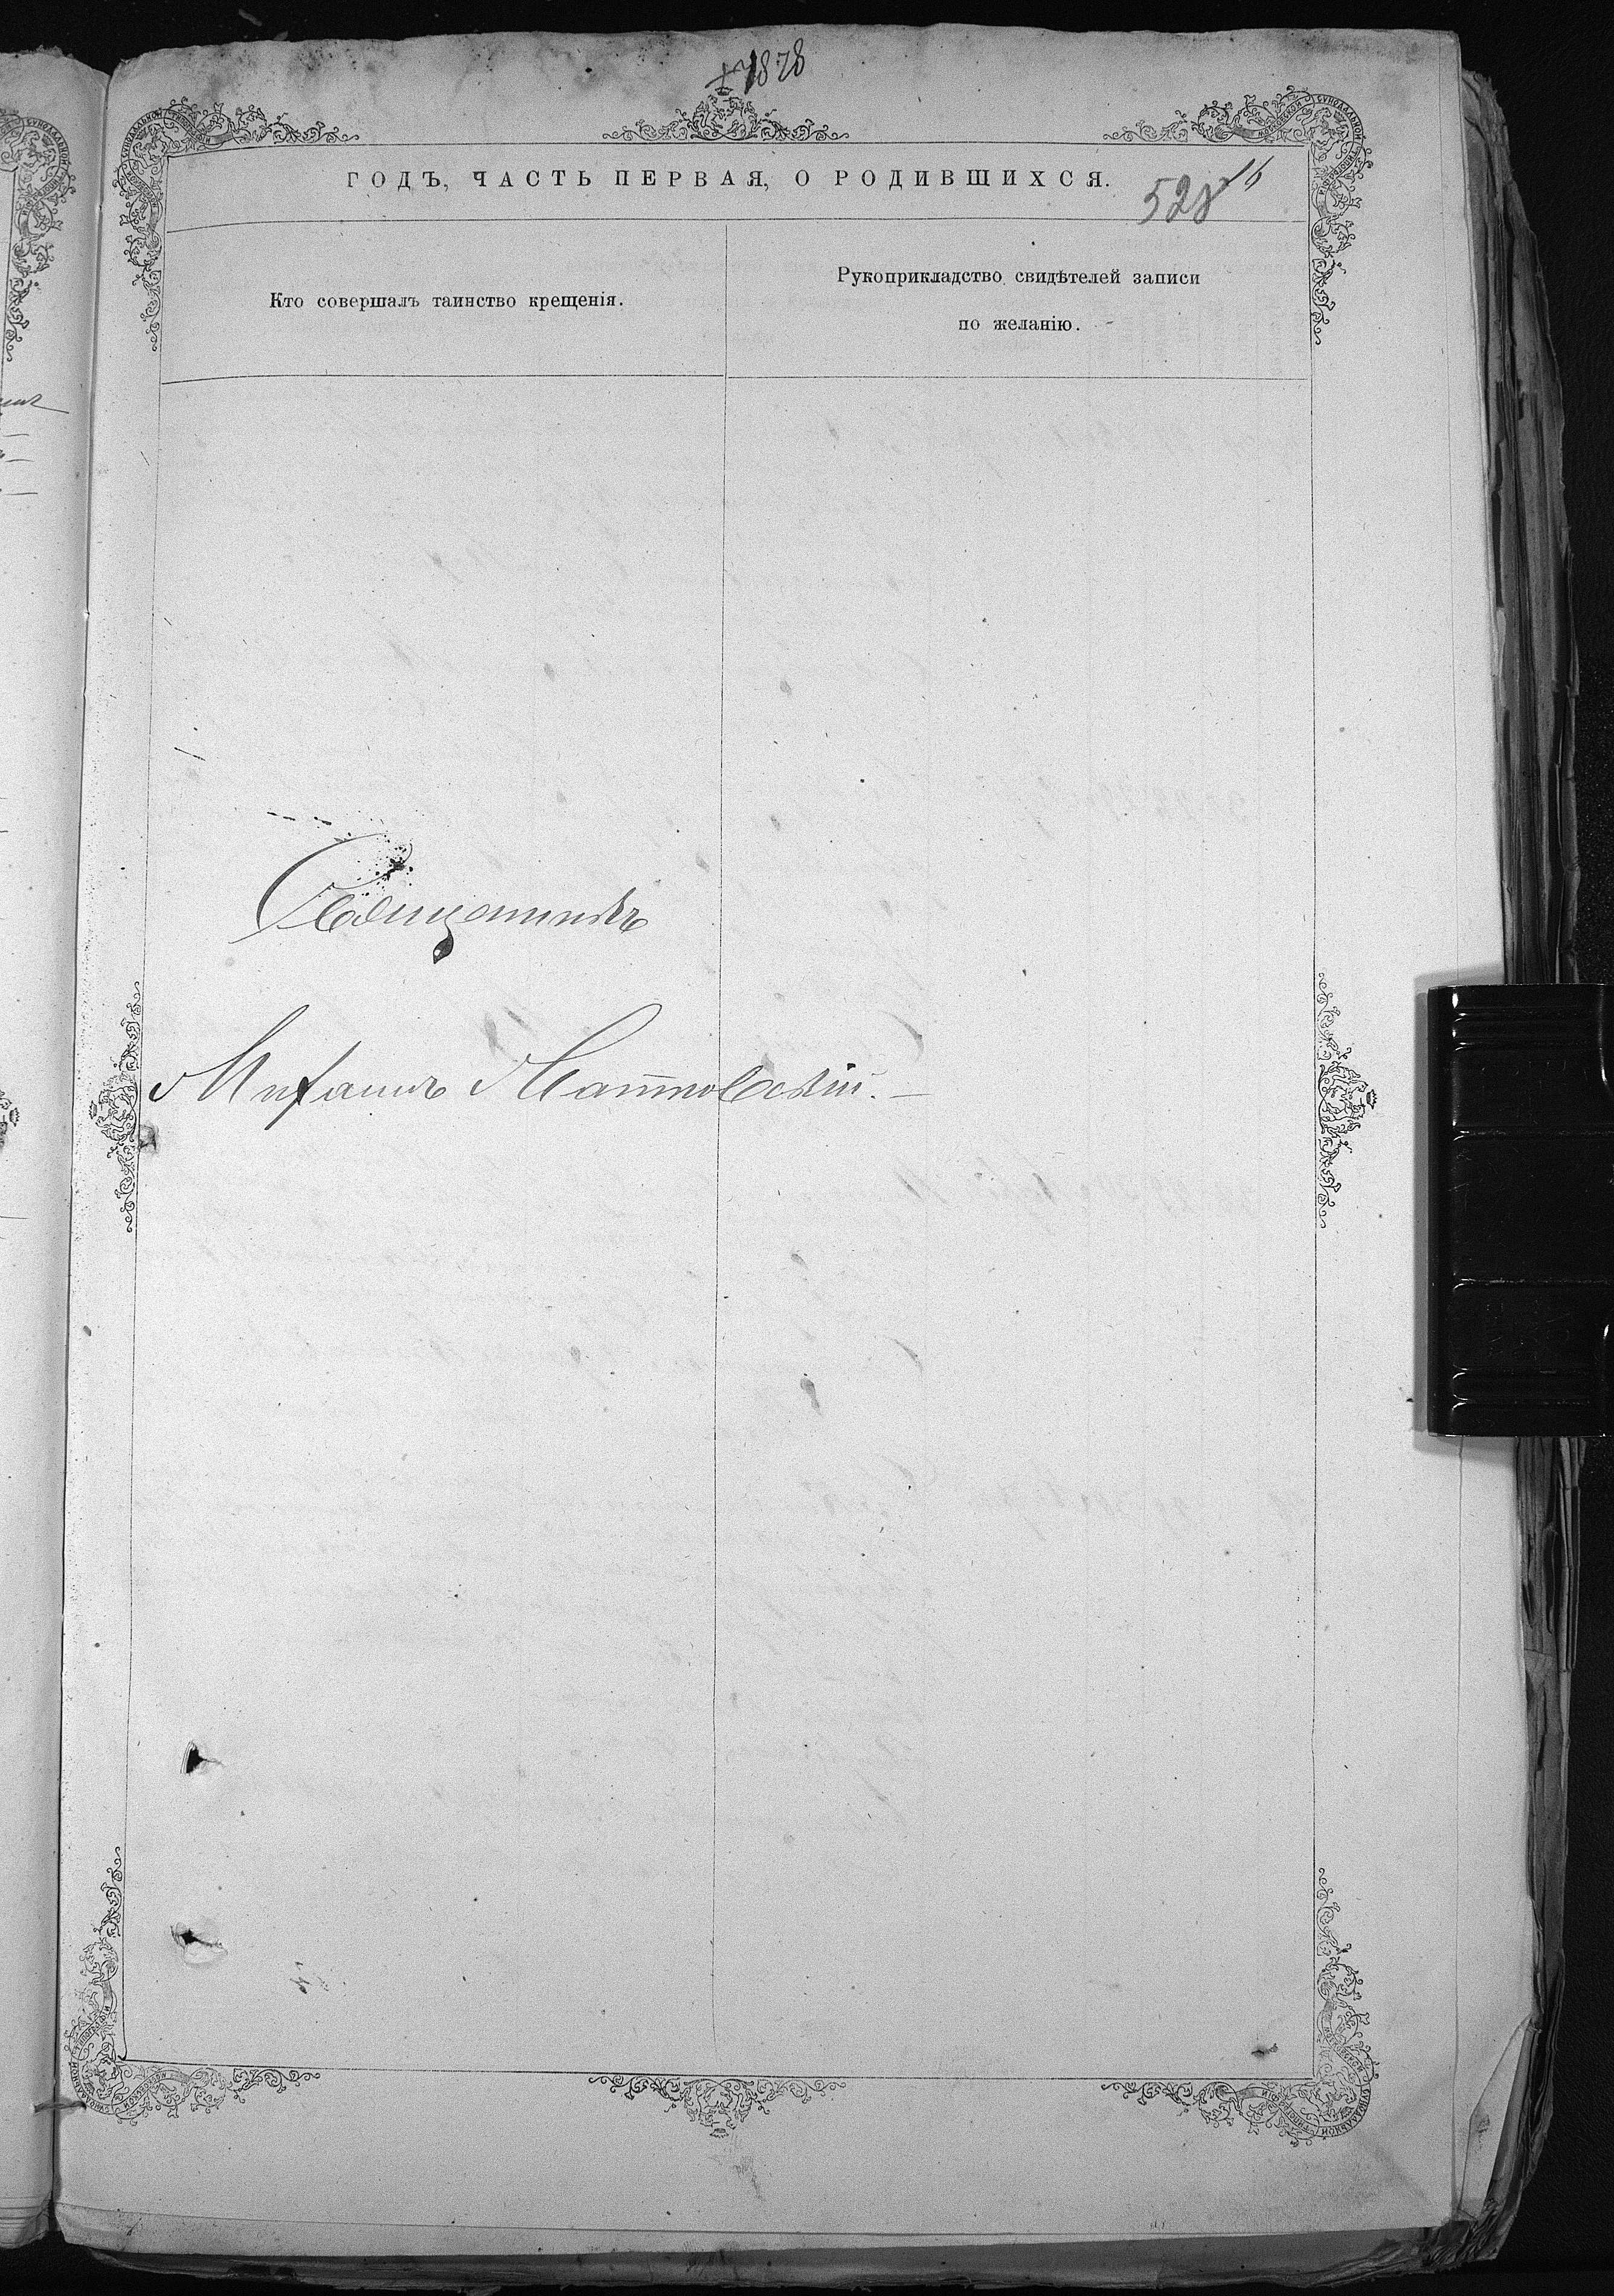 1878
ГОДЪ, ЧАСТЬ ПЕРВАЯ, О РОДИВШИХСЯ.
Кто совершалъ таинство крещенія.
Рукоприкладство свидѣтелей записи
по желанію.
Священникъ
Михаилъ